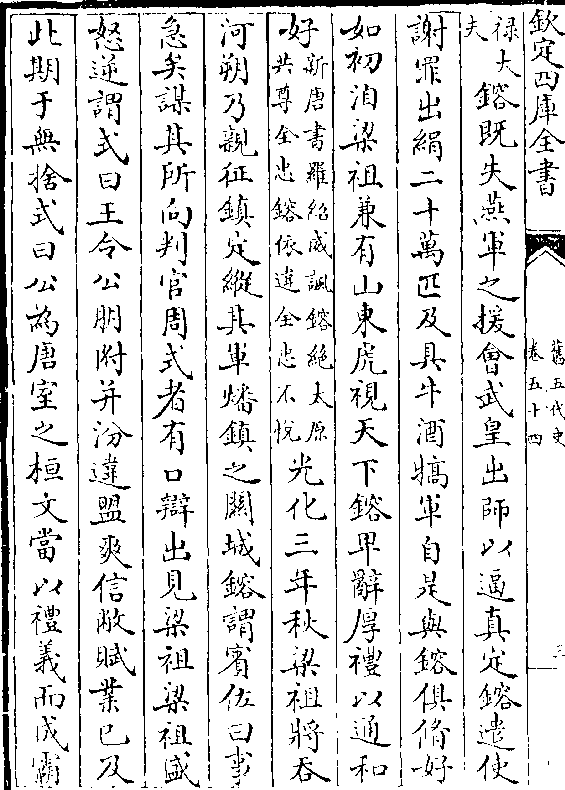 欽定四庫全書
舊五代史
卷五十四
三
禄大
夫
鎔既失燕軍之援會武皇出師以逼真定鎔遣使
謝罪出絹二十萬匹及具牛酒犒軍自是與鎔俱脩好
如初洎梁祖兼有山東虎視天下鎔卑辭厚禮以通和
好
新唐書羅紹威諷鎔絶太原
共尊全忠鎔依違全忠不悦
光化三年秋梁祖將吞
河朔乃親征鎮定縱其軍燔鎮之關城鎔謂賓佐曰事
急矣謀其所向判官周式者有口辯出見梁祖梁祖盛
怒逆謂式曰王令公朋附并汾違盟爽信敝賦業已及
此期于無捨式曰公為唐室之桓文當以禮義而成霸